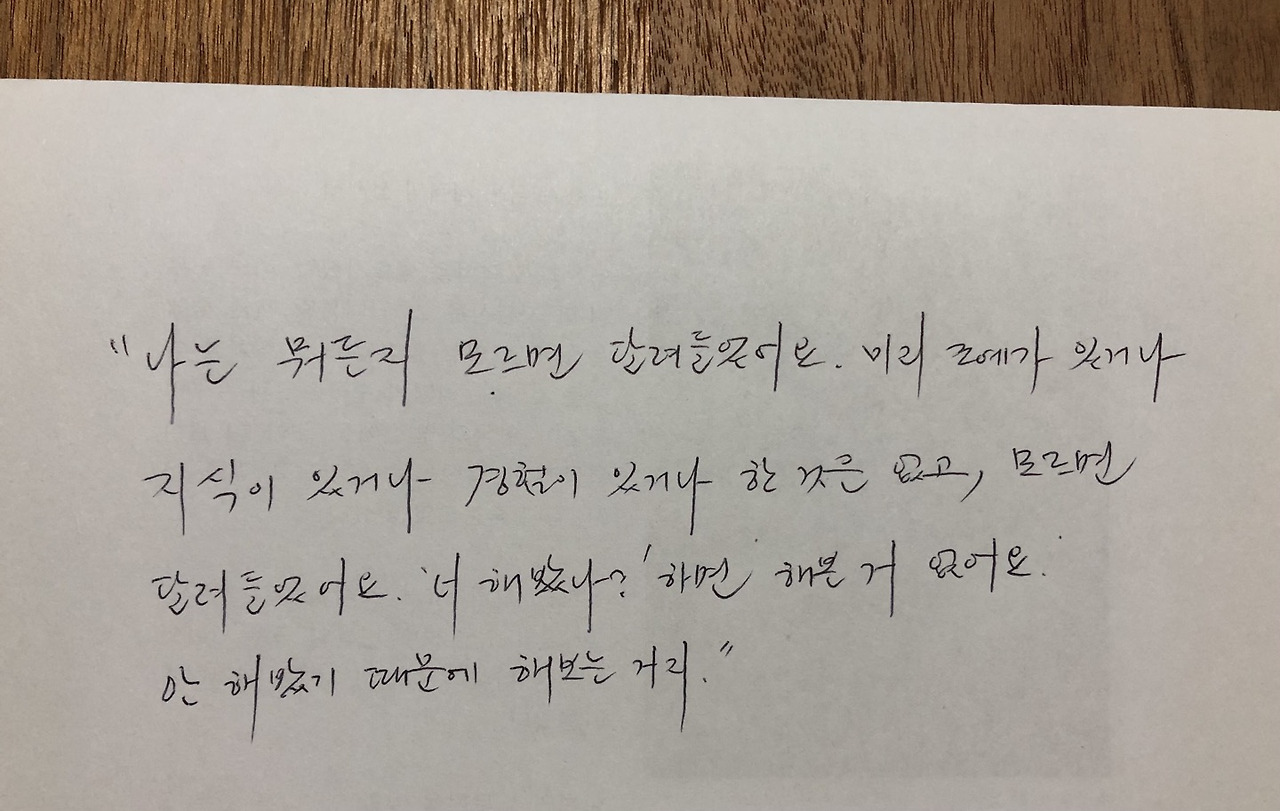 "나는 뭐든지 모르면 달려들었어요. 미리 조예가 있거나
지식이 있거나 경험이 있거나 한 것은 없고, 모르면
달려들었어요. '너 해봤나?' 하면 해본 거 없어요.
안 해봤기 때문에 해보는 거지."